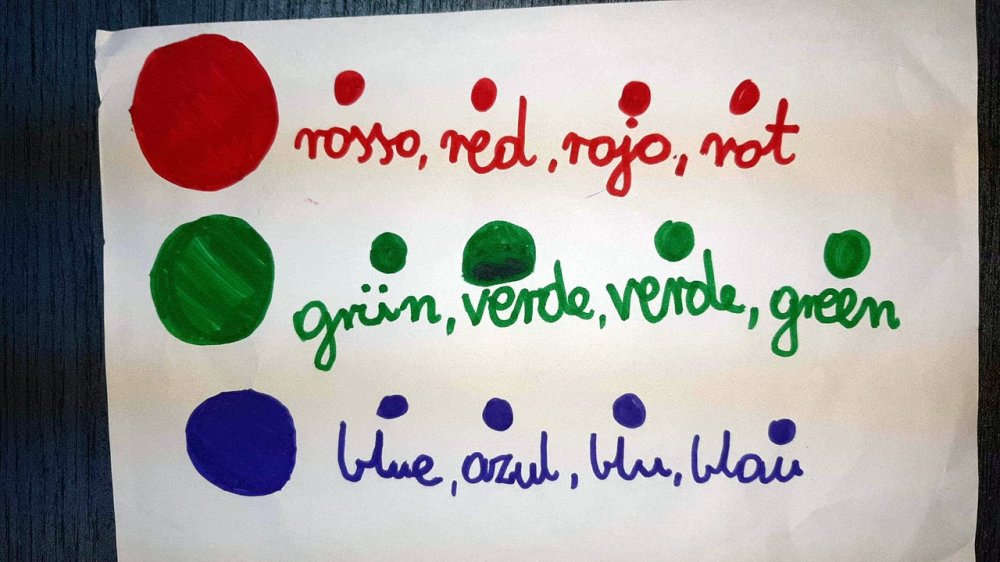 rosso, red, rojo, rot
grün, verde, verde, green
blue, azul, blu, blau